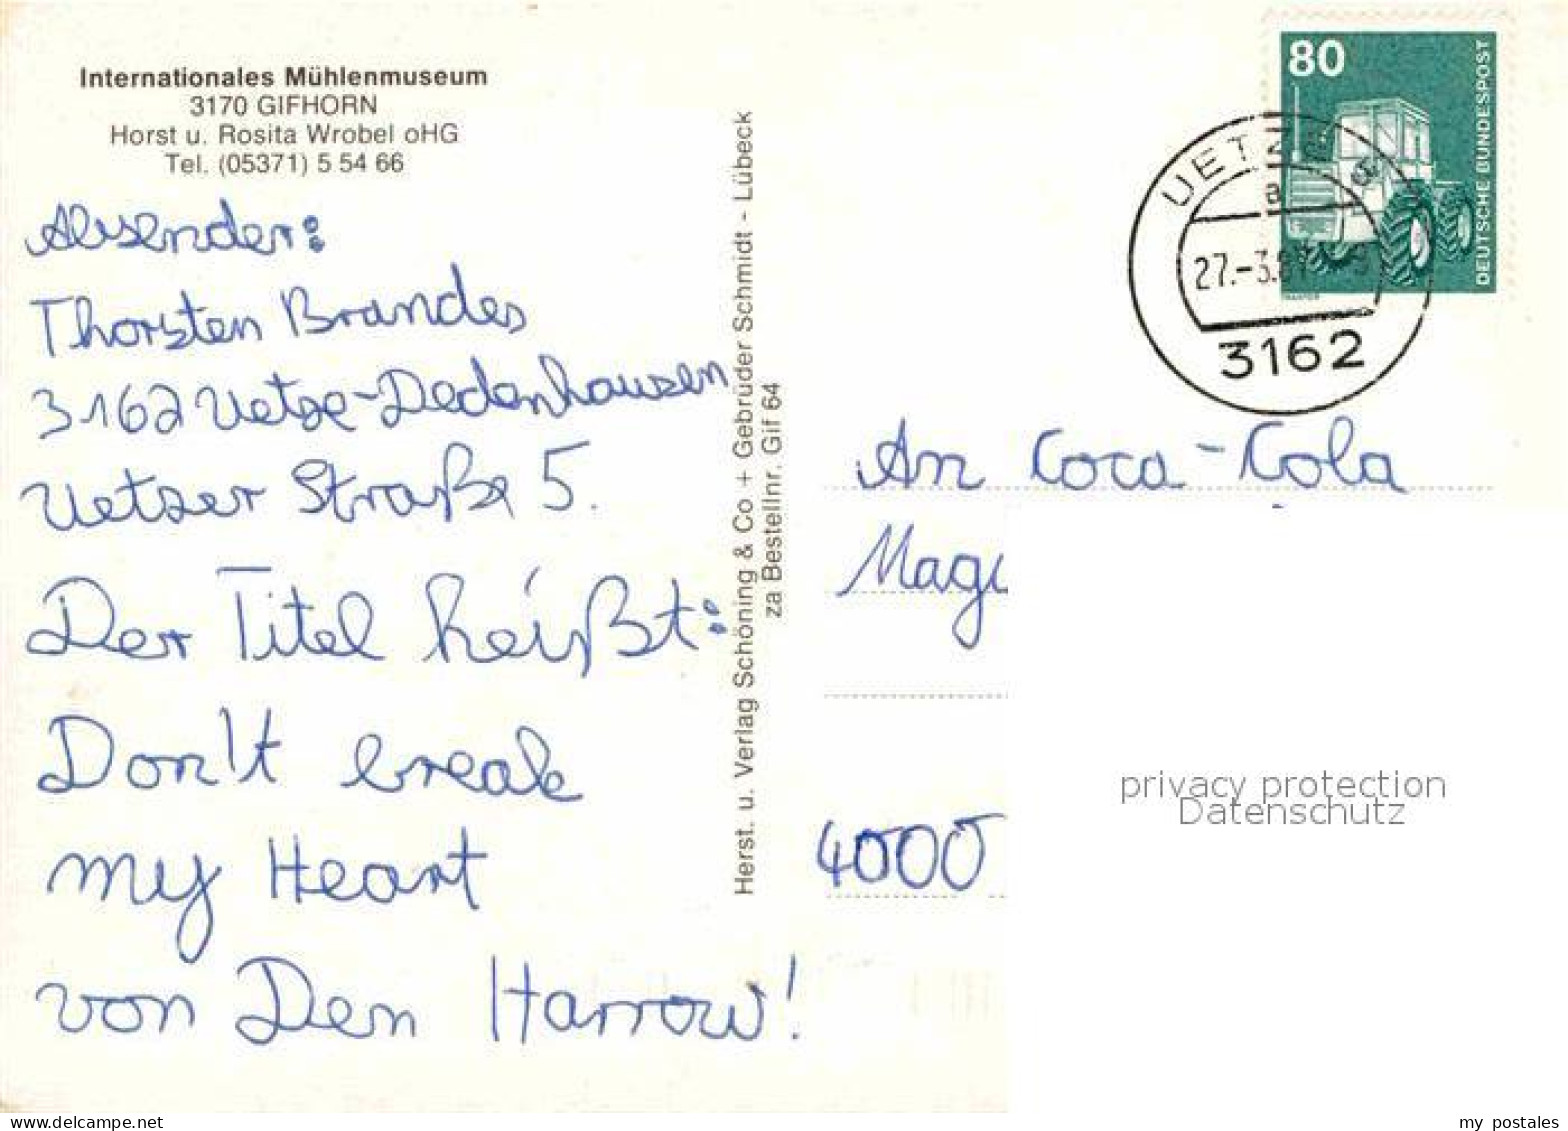 Internationales Mühlenmuseum
3170 GIFHORN
Horst u. Rosita Wrobel oHG
Tel. (05371) 5 54 66
Absender:
Thorsten Brandes
3162 Uetze-Dedenhausen
Uetzer Straße 5.
Der Titel heißt:
Don't break
my Heart
von Den Harrow!
Herst. u. Verlag Schöning & Co + Gebrüder Schmidt - Lübeck
za Bestellnr. Gif 64
80
DEUTSCHE BUNDESPOST
UETZE
a
27.-3.
3162
An Coca-Cola
4000
privacy protection
Datenschutz
my postales